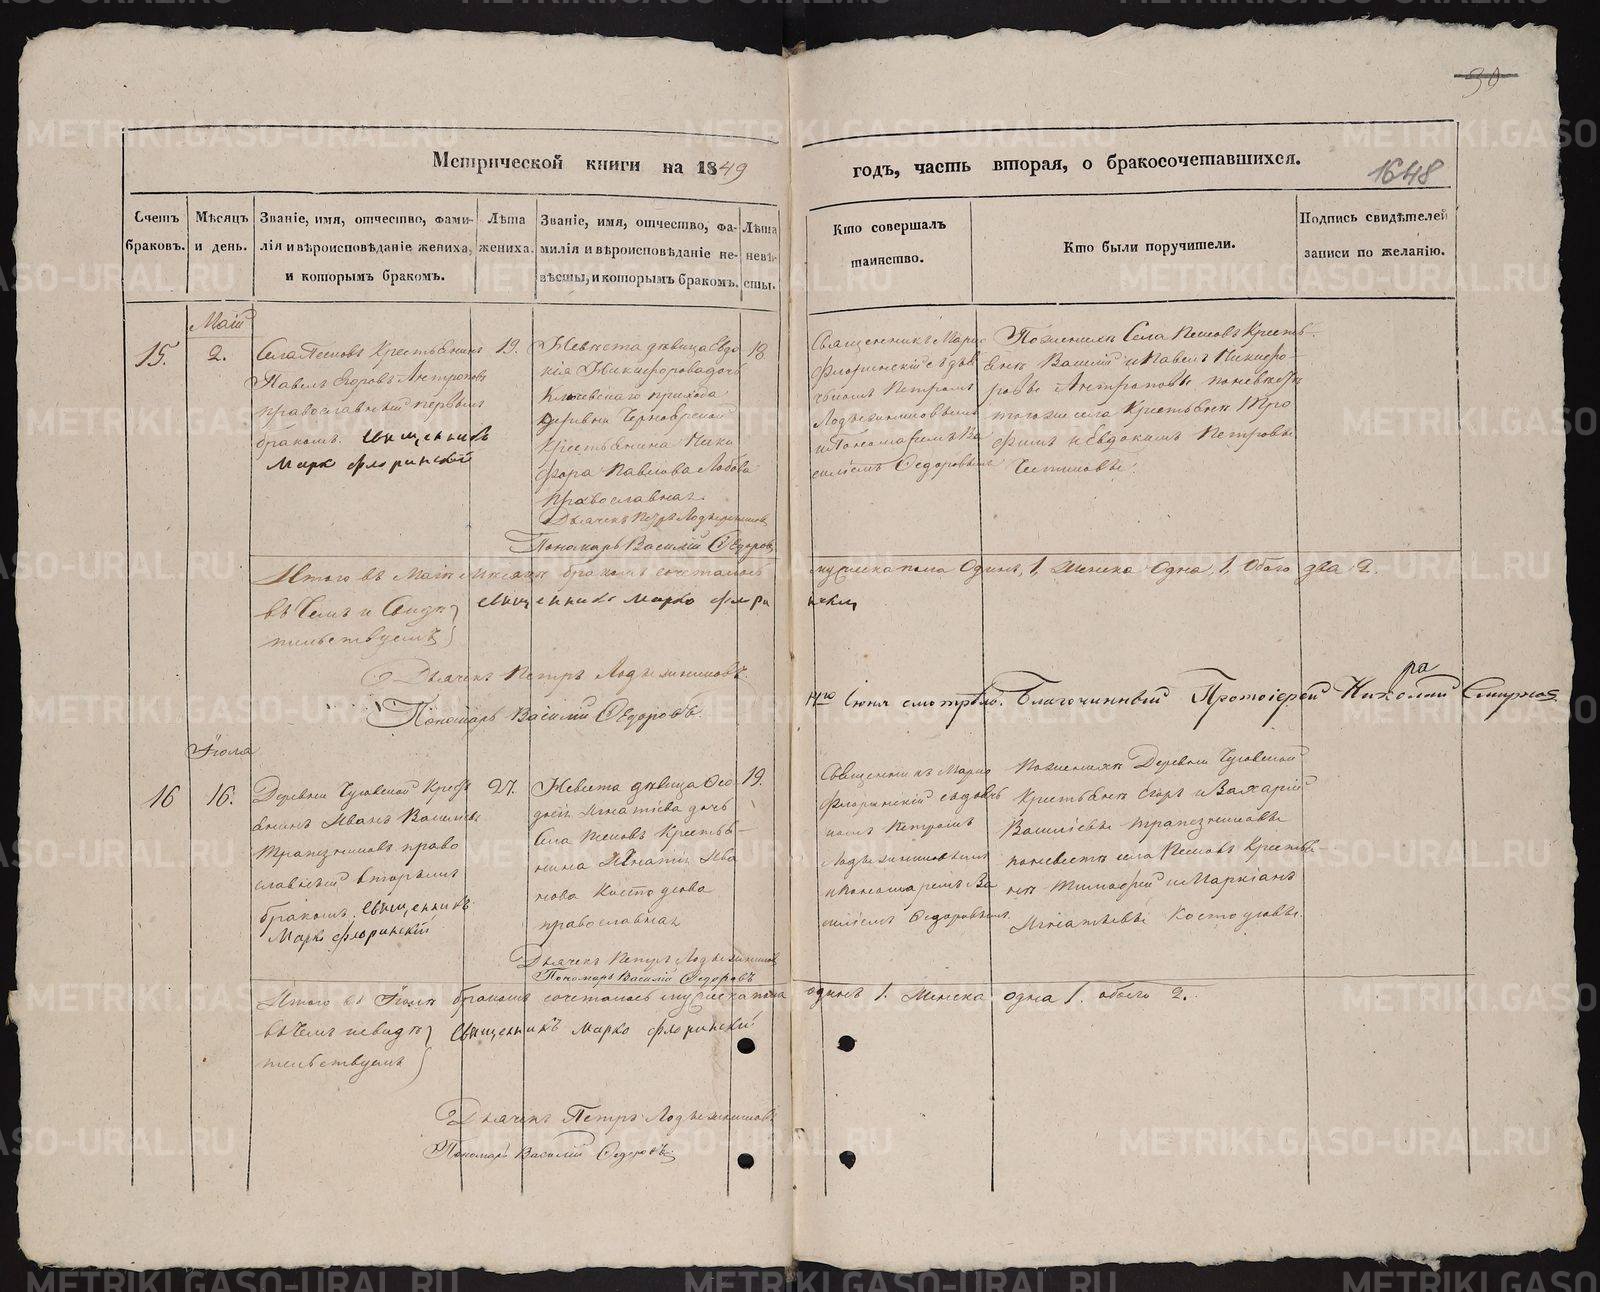 30
Метрической книги на 1849
годъ, часть вторая, о бракосочетавшихся.
1648
Счетъ браковъ.
Мѣсяцъ и день.
Званіе, имя, отчество, фами-
лія и вѣроисповѣданіе жениха,
и которымъ бракомъ.
Лѣта
жениха.
Званіе, имя, отчество, фа-
милія и вѣроисповѣданіе не-
вѣсты, и которымъ бракомъ.
Лѣта
невѣ-
сты.
Кто совершалъ
таинство.
Кто были поручители.
Подпись свидѣтелей
записи по желанію.
15.
Маій
2.
Крестьянинъ
Павелъ Егоровъ Антроповъ
православный первымъ
бракомъ. Священникъ
Марко Флоринскій
19.
Невеста дѣвица Евдо
кія Никифорова дочь
прихода
деревни
Крестьянина Ники
фора Павлова
православная.
Дьячекъ Петръ
Пономарь Василій Ѳедоровъ
18
Священникъ Марко
Флоринскій съ дья
чкомъ Петромъ
и Пономаремъ Ва
силіемъ Ѳедоровымъ
По женихѣ Села Кресть-
яне Василій и Павелъ Никифо-
ровы Антроповы по невестѣ
тогоже села Крестьяне Тро
фимъ и Евдокимъ Петровы
Итого въ Маіи месяцѣ бракомъ сочеталось
мужеска пола Одинъ, 1, женска Одна, 1, Обоего два 2.
въ Чемъ и Свидѣ
тельствуемъ
Священникъ Марко Флори
нскій
Дьячекъ Петръ
Пономарь Василій Ѳедоровъ.
Іюня смотрѣлъ. Благочинный Протоіерей Николай Смирнов
ра
Іюля
16
16.
Деревни Кресть
янинъ Иванъ Васильевъ
Трапезниковъ право
славный вторымъ
бракомъ. Священникъ
Марко Флоринскій
27.
Невеста дѣвица Ѳео
Игнатіева дочь
Села Крестья-
нина Игнатія Ива
нова
православная
Дьячекъ Петръ
Пономарь Василій Ѳедоровъ
19.
Священникъ Марко
Флоринскій съ дьяч
комъ Петромъ
и Пономаремъ Ва
силіемъ Ѳедоровымъ
По женихѣ Деревни
Крестьяне Егоръ и Захарій
Васильевы Трапезниковы
по невестѣ села Крестья
не Тимофей и Маркіанъ
Игнатьевы
Итого въ Іюлѣ бракомъ сочеталось мужеска пола
одинъ 1. Женска одна 1. обоего 2.
въ Чемъ и свидѣ
тельствуемъ
Священникъ Марко Флоринскій
Дьячекъ Петръ
Пономарь Василій Ѳедоровъ.
METRIKI.GASO-URAL.RU